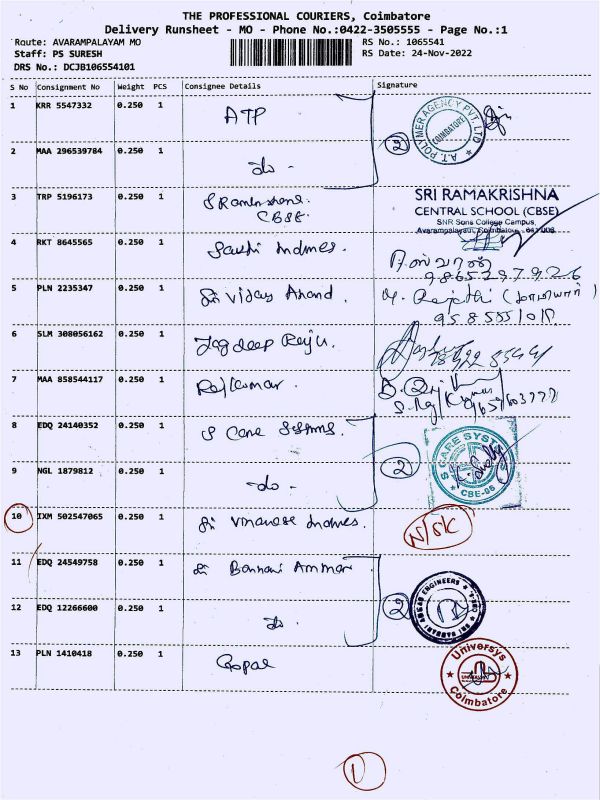 THE PROFESSIONAL COURIERS, Coimbatore
Delivery Runsheet - MO - Phone No.:0422-3505555 - Page No.:1
Route: AVARAMPALAYAM MO
Staff: PS SURESH
DRS No.: DCJB106554101
RS No.: 1065541
RS Date: 24-Nov-2022
S No Consignment No Weight PCS Consignee Details Signature
1 KRR 5547332 0.250 1 ATP
A.T. POLYMER AGENCY PVT. LTD
COIMBATORE
2
2 MAA 296539784 0.250 1 do -
3 TRP 5196173 0.250 1
CBSE
SRI RAMAKRISHNA
CENTRAL SCHOOL (CBSE)
SNR Sons College Campus,
Avarampalayam, Coimbatore - 641 006
4 RKT 8645565 0.250 1
5 PLN 2235347 0.250 1 Sri Vijay Anand.
6 SLM 308056162 0.250 1 Jagdeep Raju.
7 MAA 858544117 0.250 1 Rajkumar.
8 EDQ 24140352 0.250 1 S Care Systems.
2
S CARE SYSTEMS
CBE-06
9 NGL 1879812 0.250 1 do -
10 IXM 502547065 0.250 1
N/SK
11 EDQ 24549758 0.250 1 Sri Bannari Amman
2
12 EDQ 12266600 0.250 1 do
13 PLN 1410418 0.250 1 Gopal
Universys
Coimbatore
1